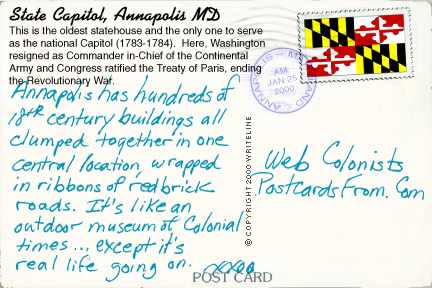 State Capitol, Annapolis MD
This is the oldest statehouse and the only one to serve
as the national Capitol (1783-1784).  Here, Washington
resigned as Commander in-Chief of the Continental
Army and Congress ratified the Treaty of Paris, ending
the Revolutionary War.
ANNAPOLIS MD
AM
JAN 25
2000
Annapolis has hundreds of
18th century buildings all
clumped together in one
central location, wrapped
in ribbons of red brick
roads. It's like an
outdoor museum of Colonial
times... except it's
real life going on. xoxo
© COPYRIGHT 2000 WRITELINE
Web Colonists
PostcardsFrom.Com
POST CARD